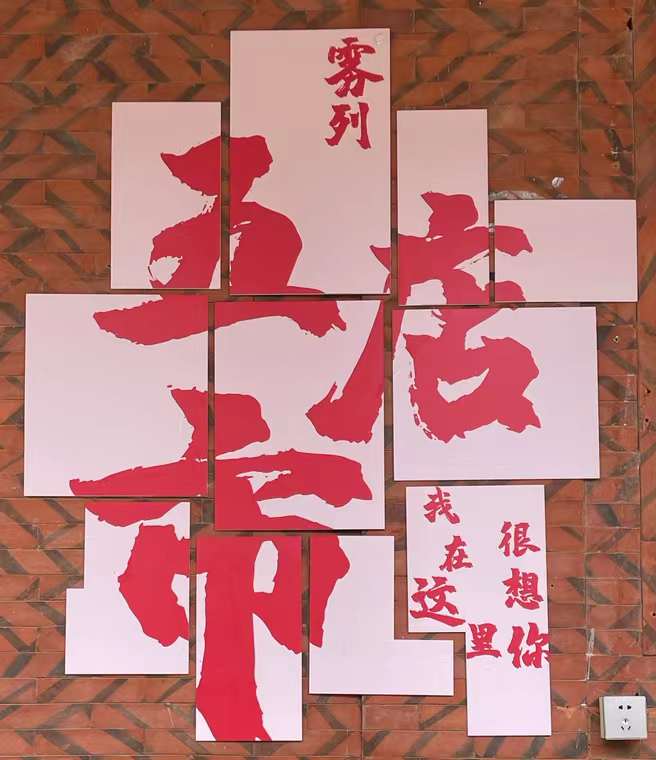 雾列
五店市
我在这里
很想你